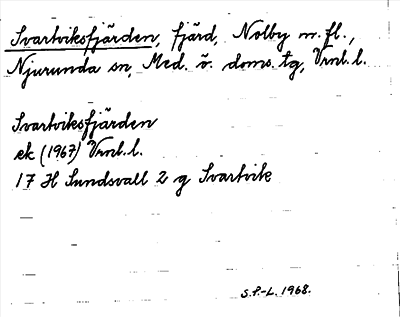 Svartviksfjärden, fjärd, Nolby m.fl.,
Njurunda sn, Med. ö. doms. tg, Vrnl. l.
Svartviksfjärden
ek (1967) Vrnl. l.
17 H Sundsvall 2 g Svartvik
S.P.-L. 1968.